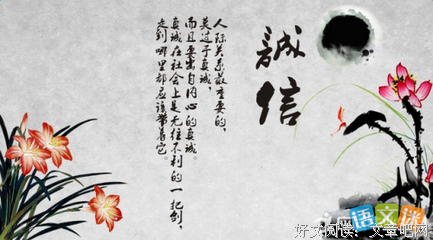 誠信
人际关系最重要的,
莫过于真诚,
而且要出自内心的真诚。
真诚在社会上是无往不利的一把剑,
走到哪里都应该带着它。
语文迷
好文阅读:文章吧网